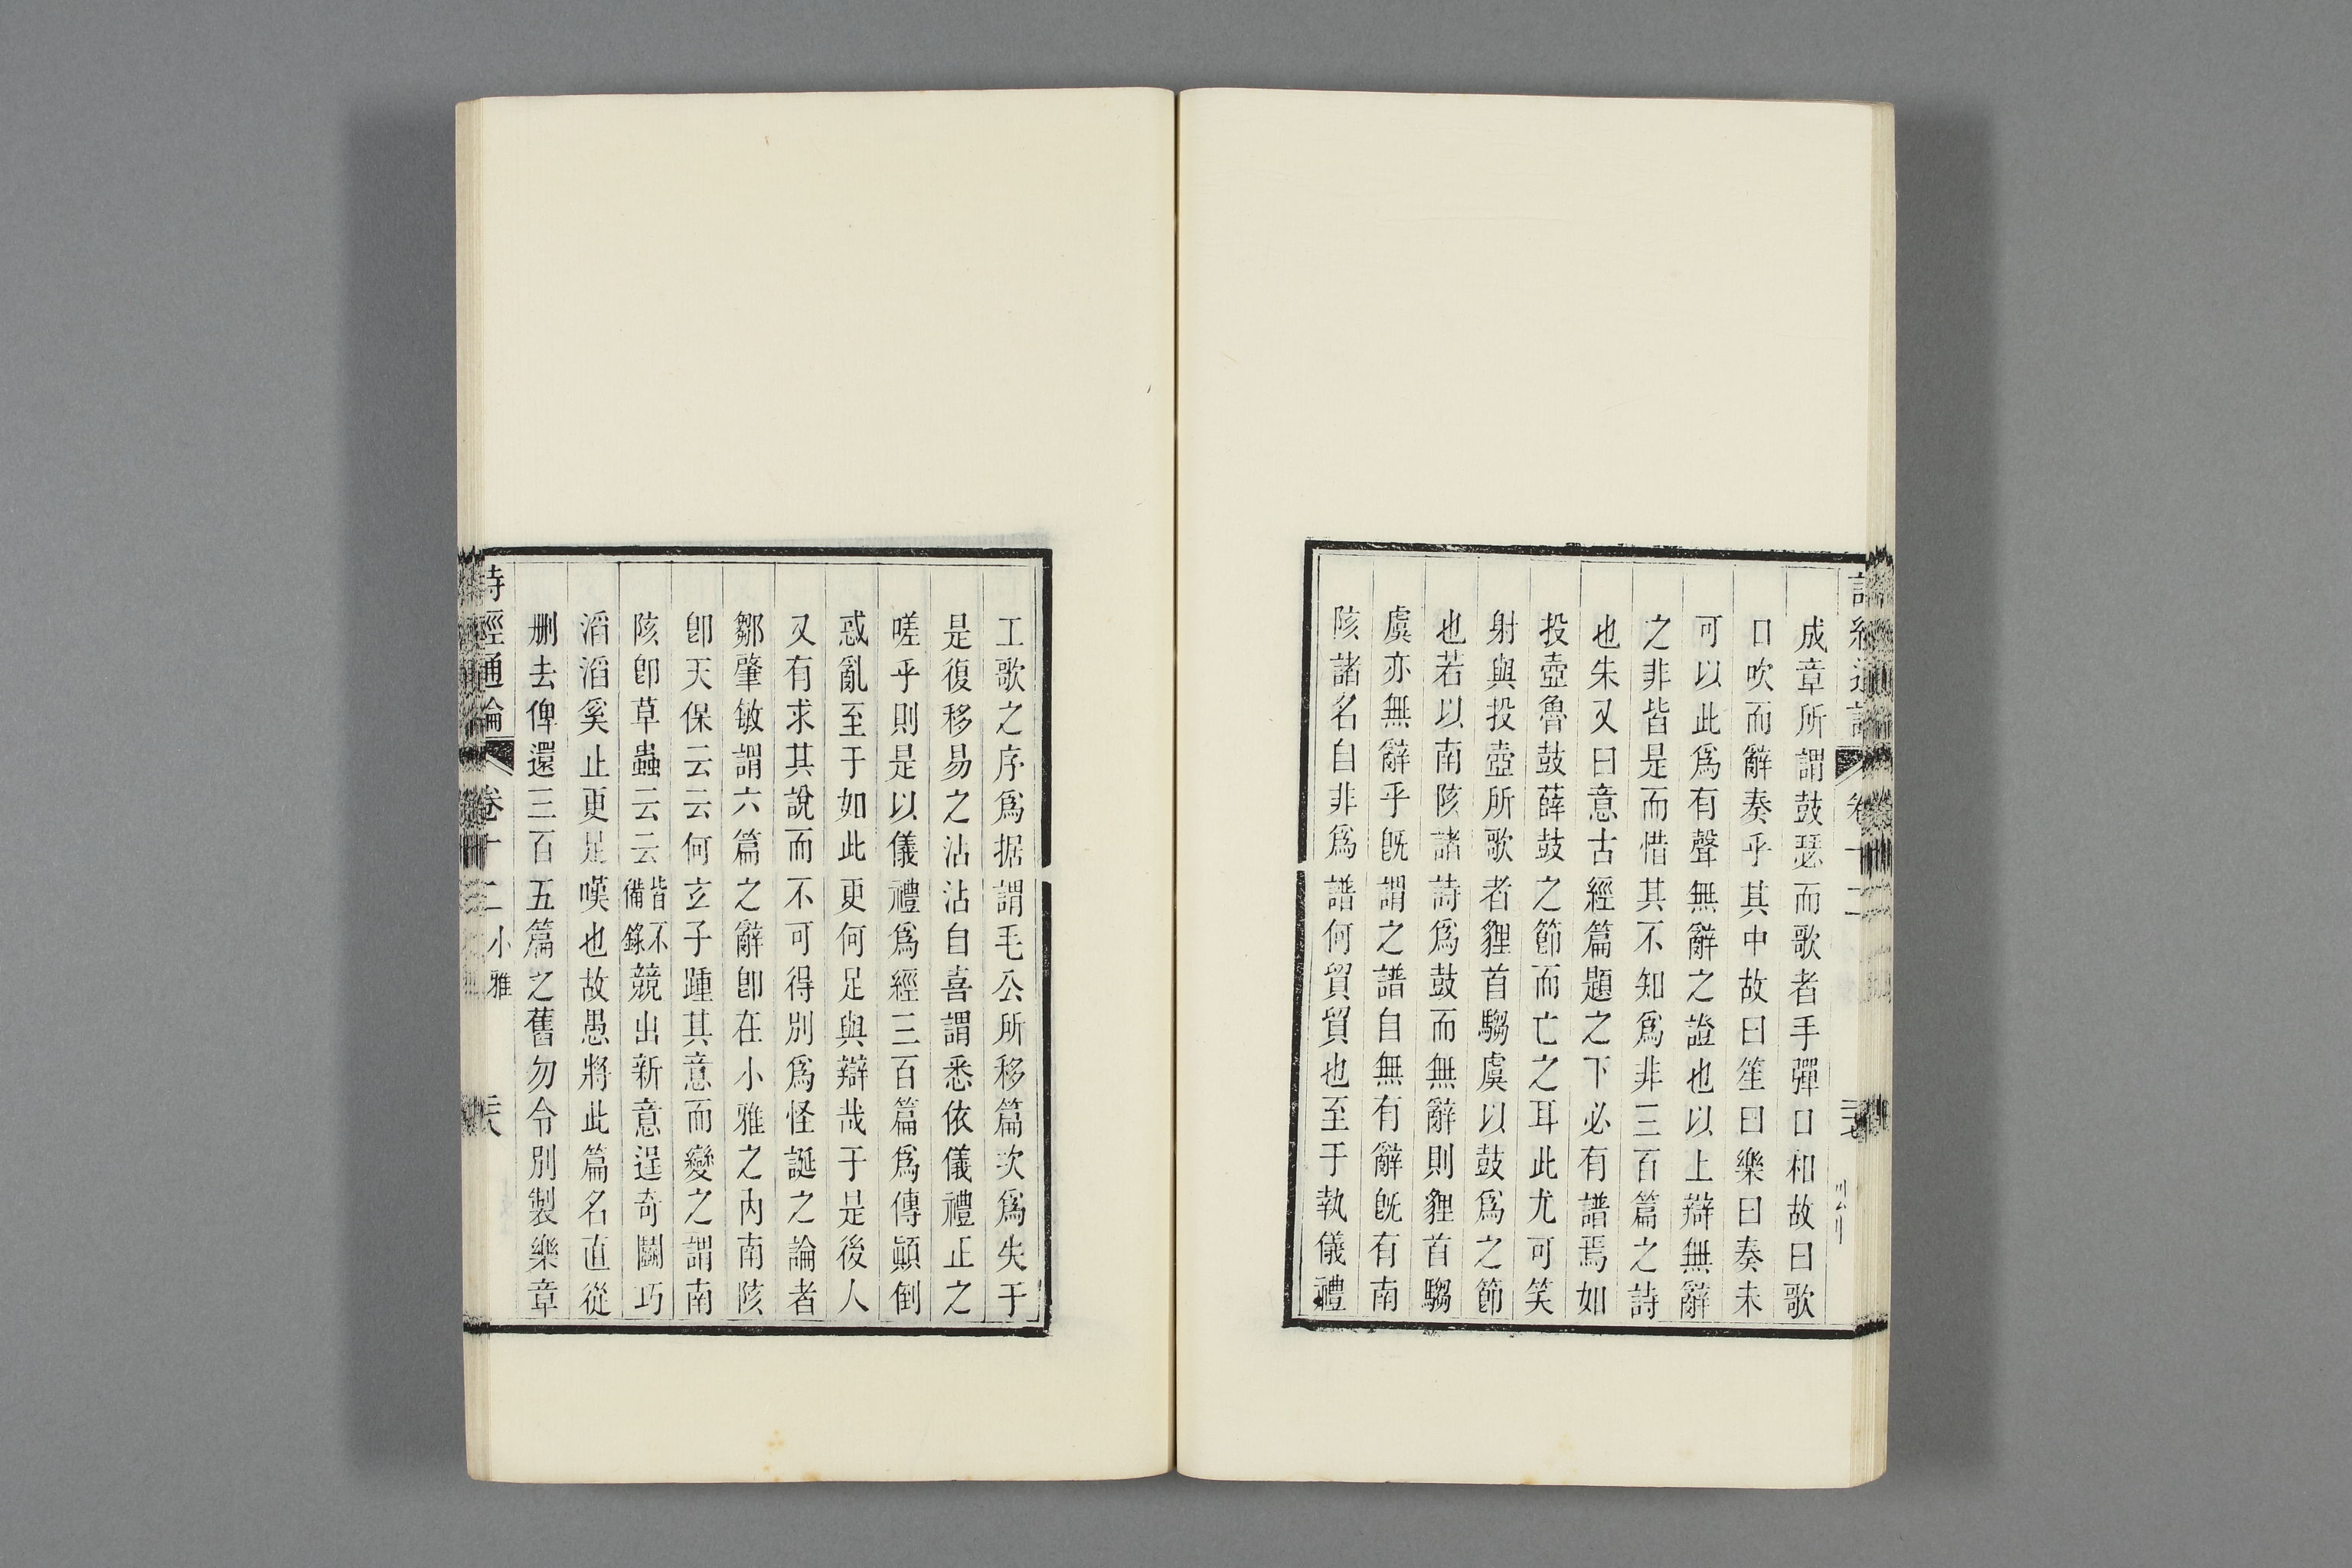 成章所謂鼓瑟而歌者手彈口和故曰歌
口吹而辭奏乎其中故曰笙曰樂曰奏未
可以此爲有聲無辭之證也以上辯無辭
之非皆是而惜其不知爲非三百篇之詩
也朱又曰意古經篇題之下必有譜焉如
投壺魯鼓薛鼓之節而亡之耳此尤可笑
射與投壺所歌者貍首騶虞以鼓爲之節
也若以南陔諸詩爲鼓而無辭則貍首騶
虞亦無辭乎旣謂之譜自無有辭旣有南
陔諸名自非爲譜何貿貿也至于執儀禮
工歌之序爲据謂毛公所移篇次爲失于
是復移易之沾沾自喜謂悉依儀禮正之
嗟乎則是以儀禮爲經三百篇爲傳顚倒
惑亂至于如此更何足與辯哉于是後人
又有求其說而不可得別爲怪誕之論者
鄒肇敏謂六篇之辭卽在小雅之內南陔
卽天保云云何玄子踵其意而變之謂南
陔卽草蟲云云皆不備錄競出新意逞奇鬬巧
滔滔奚止更足嘆也故愚將此篇名直從
删去俾還三百五篇之舊勿令別製樂章
詩經通論 卷十二 小雅 三六